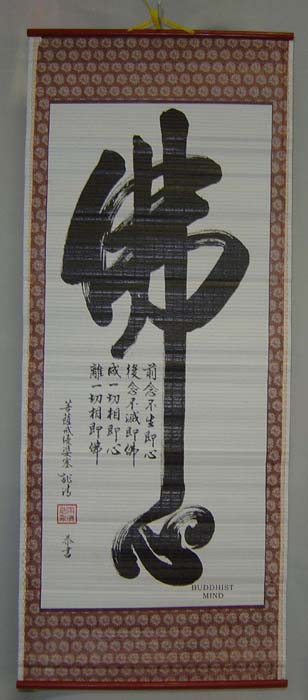 佛心
前念不生即心
後念不滅即佛
成一切相即心
離一切相即佛
菩薩戒優婆塞
恭書
BUDDHIST
MIND